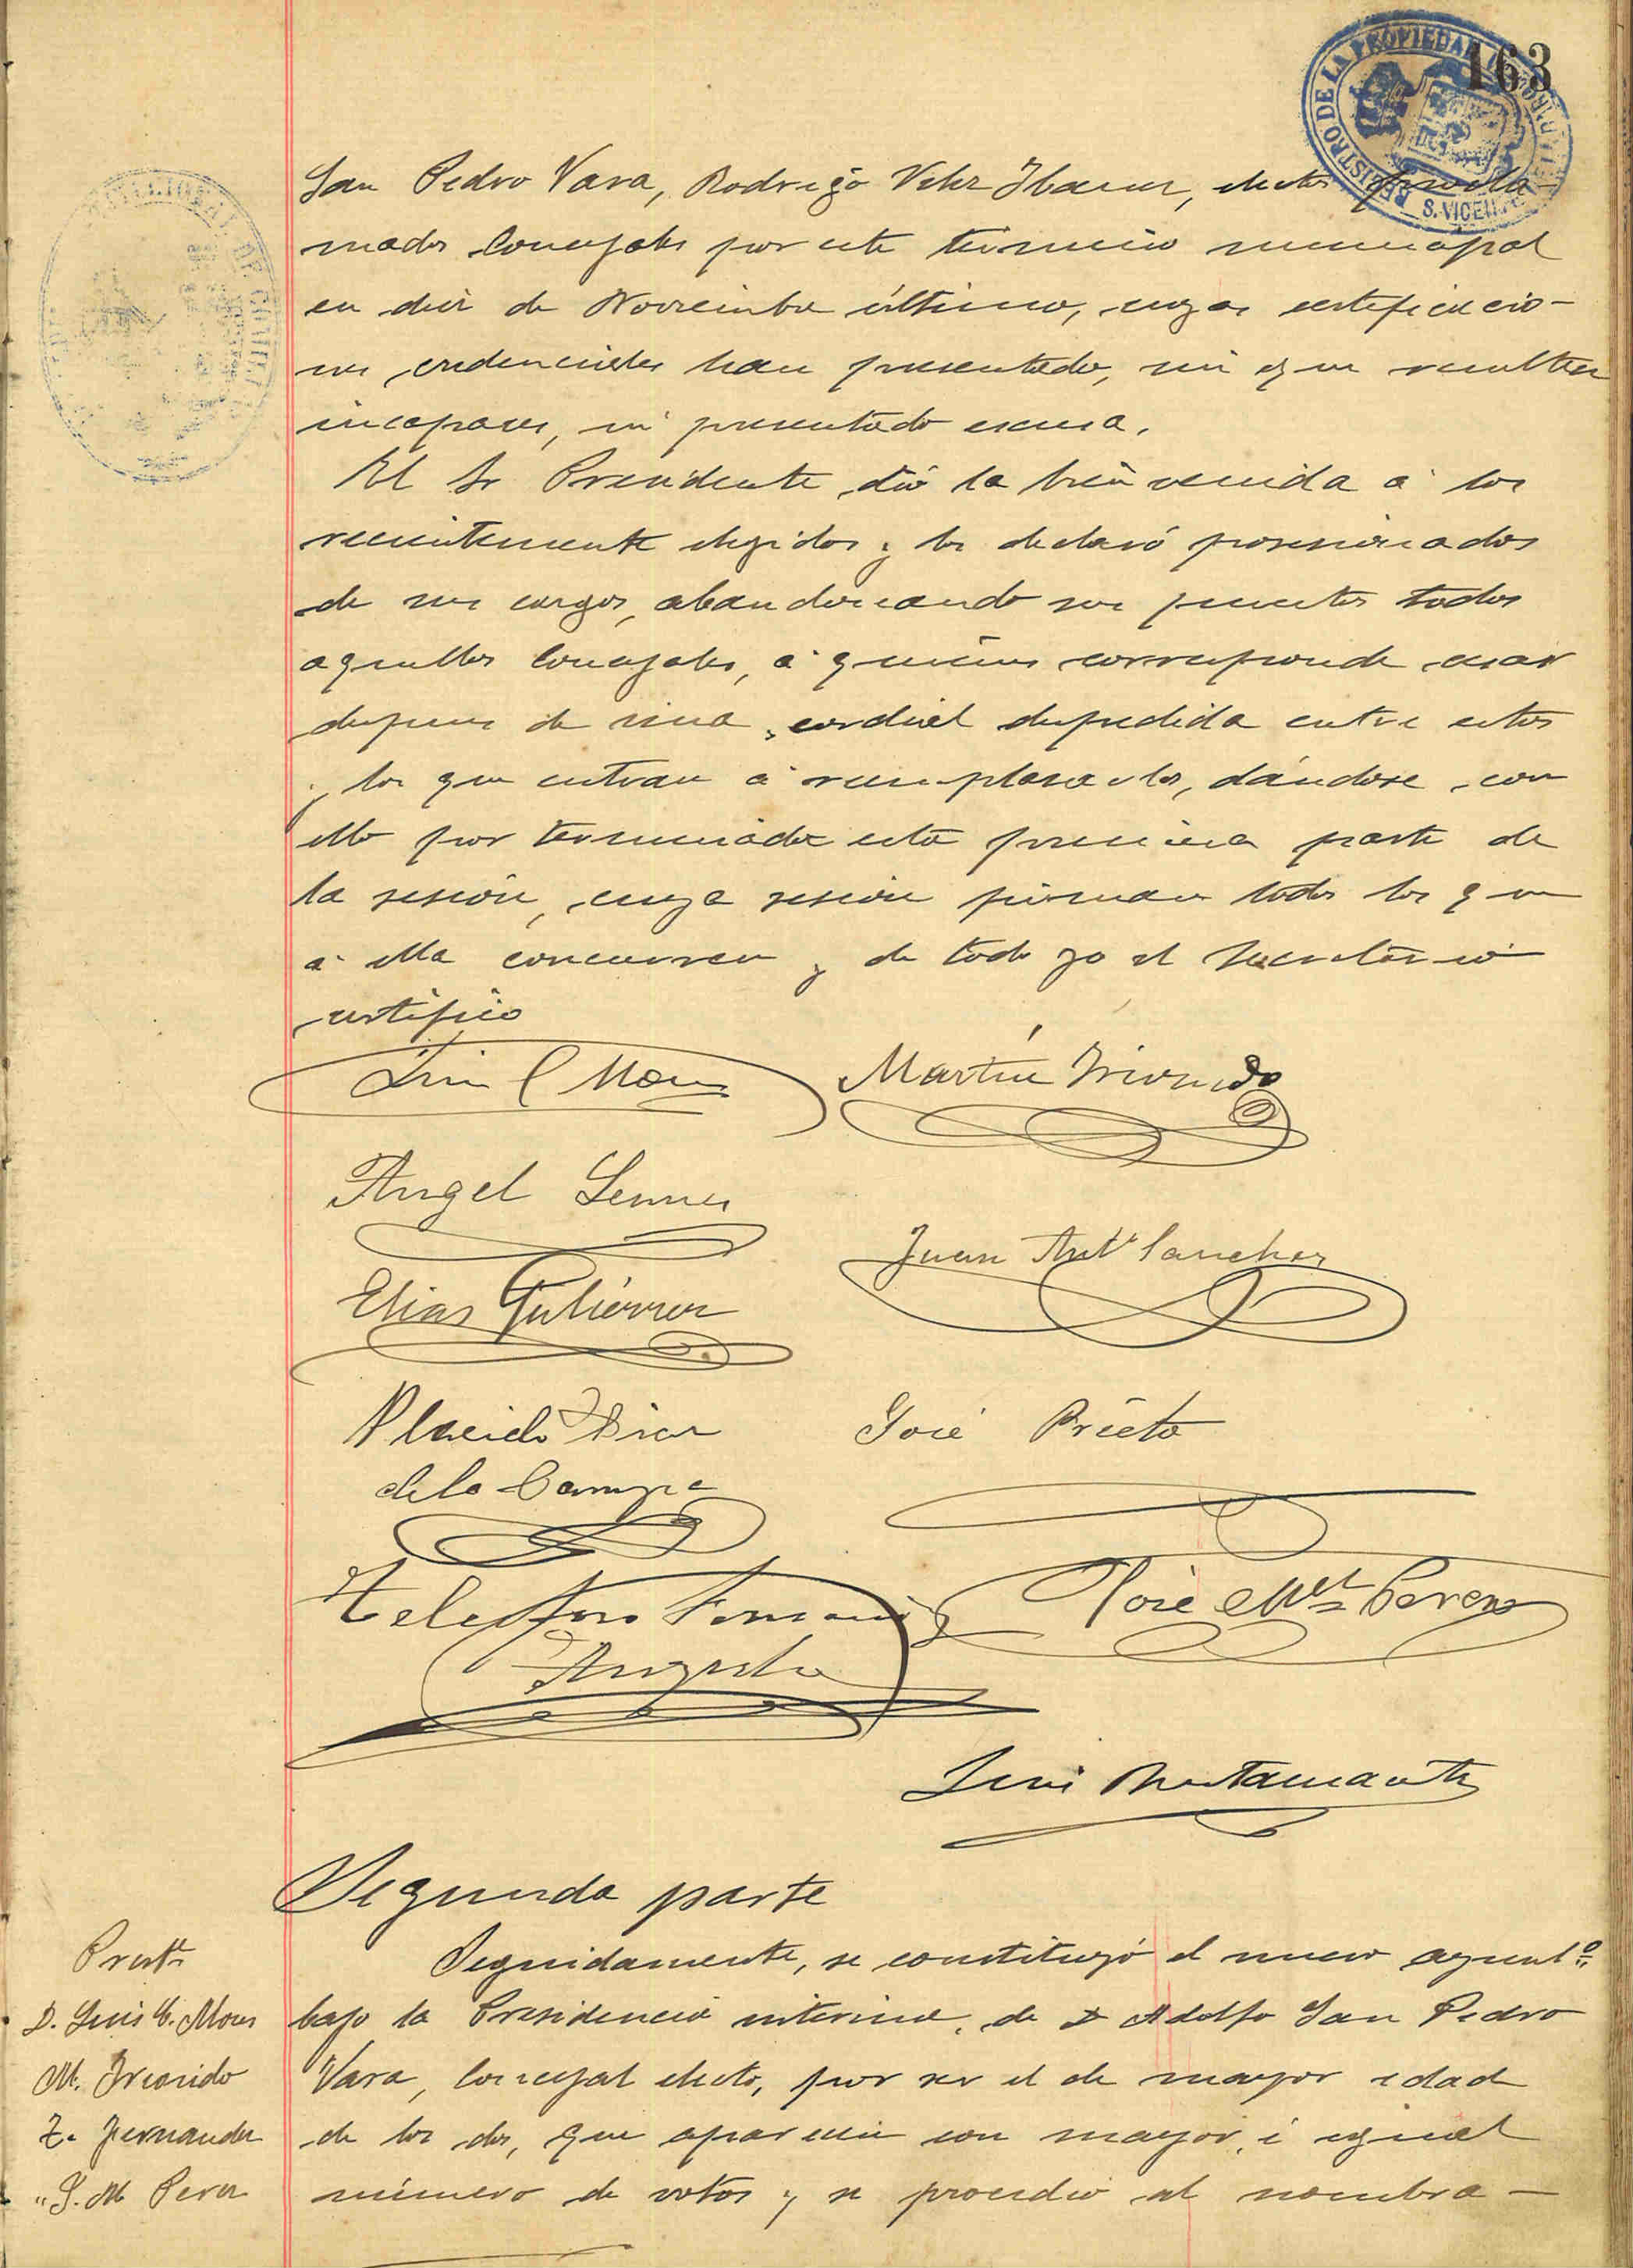 163
REGISTRO DE LA PROPIEDAD
S. VICENTE
San Pedro Vara, Rodrigo Velez Ibanez, electos procla-
mados Concejales por este término municipal
en diez de Noviembre último, cuyas certificacio-
nes credenciales han presentado, sin que resulten
incapaces, ni presentado escusa.
El Sr Presidente dió la bienvenida á los
recientemente elegidos y los declaró posesionados
de sus cargos, abandonando sus puestos todos
aquellos Concejales, á quienes corresponde cesar
despues de una cordial despedida entre estos
y los que entran á reemplazarlos, dándose con
ello por terminada esta primera parte de
la sesión, cuya sesión firman todos los que
á ella concurren y de todo yo el Secretario
certifico
Luis C Mons
Martin Irionido
Angel
Juan Antº Sanchez
Elias Gutiérrez
Placido Diaz
de la Campa
José Prieto
Telesforo Fernandez
José Mª Perez
Luis Bustamante
Segunda parte
Presten
D. Luis C. Mons
M. Irionido
T. Fernandez
" J. M Perez
Seguidamente, se constituyó el nuevo ayuntº
bajo la Presidencia interina, de D Adolfo San Pedro
Vara, Concejal electo, por ser el de mayor edad
de los dos, que aparecen con mayor, é igual
número de votos y se procedió al nombra-